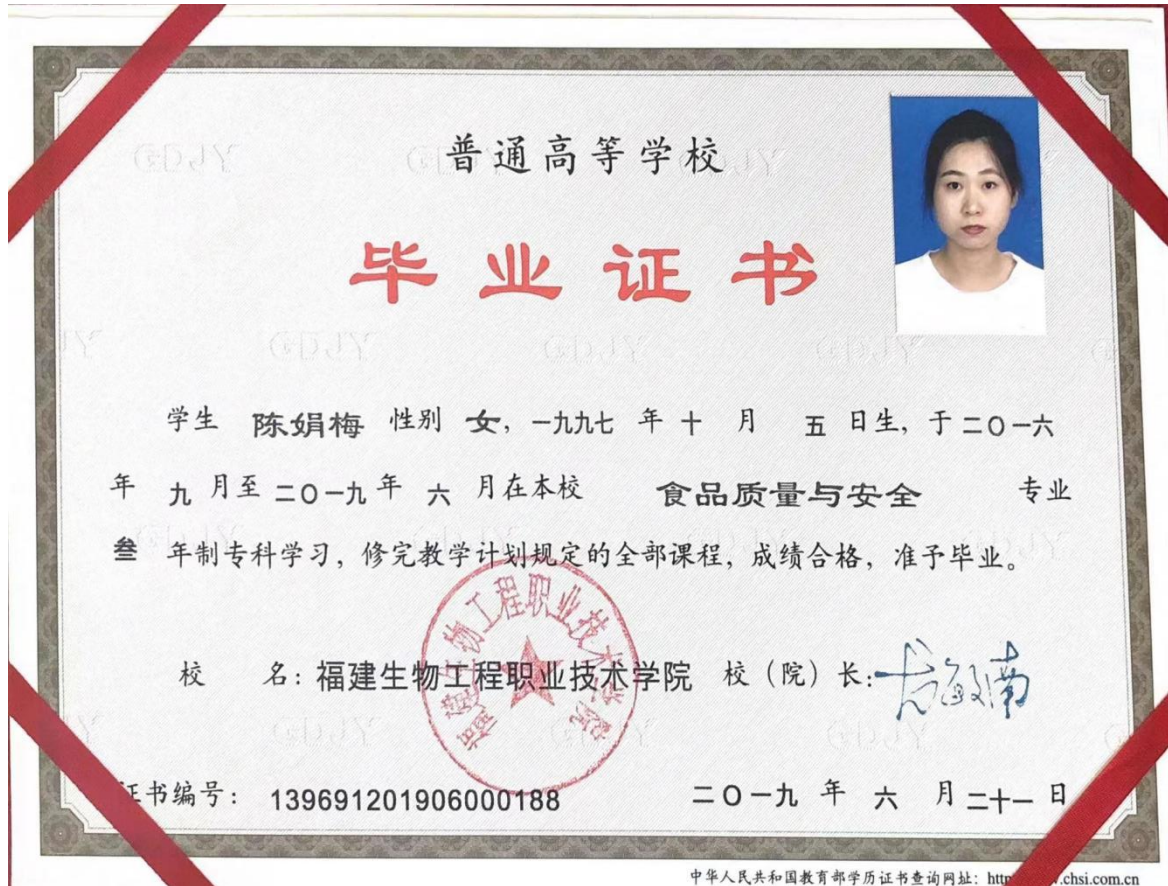 普通高等学校
毕业证书
学生 陈娟梅 性别 女，一九九七 年 十 月 五 日生，于二〇一六
年 九 月至 二〇一九 年 六 月在本校 食品质量与安全 专业
叁 年制专科学习，修完教学计划规定的全部课程，成绩合格，准予毕业。
福建生物工程职业技术学院
校 名：福建生物工程职业技术学院 校（院）长：
证书编号：139691201906000188 二〇一九 年 六 月 二十一 日
中华人民共和国教育部学历证书查询网址：http .chsi.com.cn